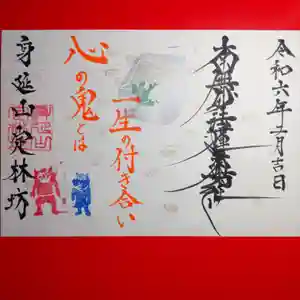 令和六年二月吉日
南無妙法蓮華経
一生の付き合い
心の鬼とは
身延山覚林坊